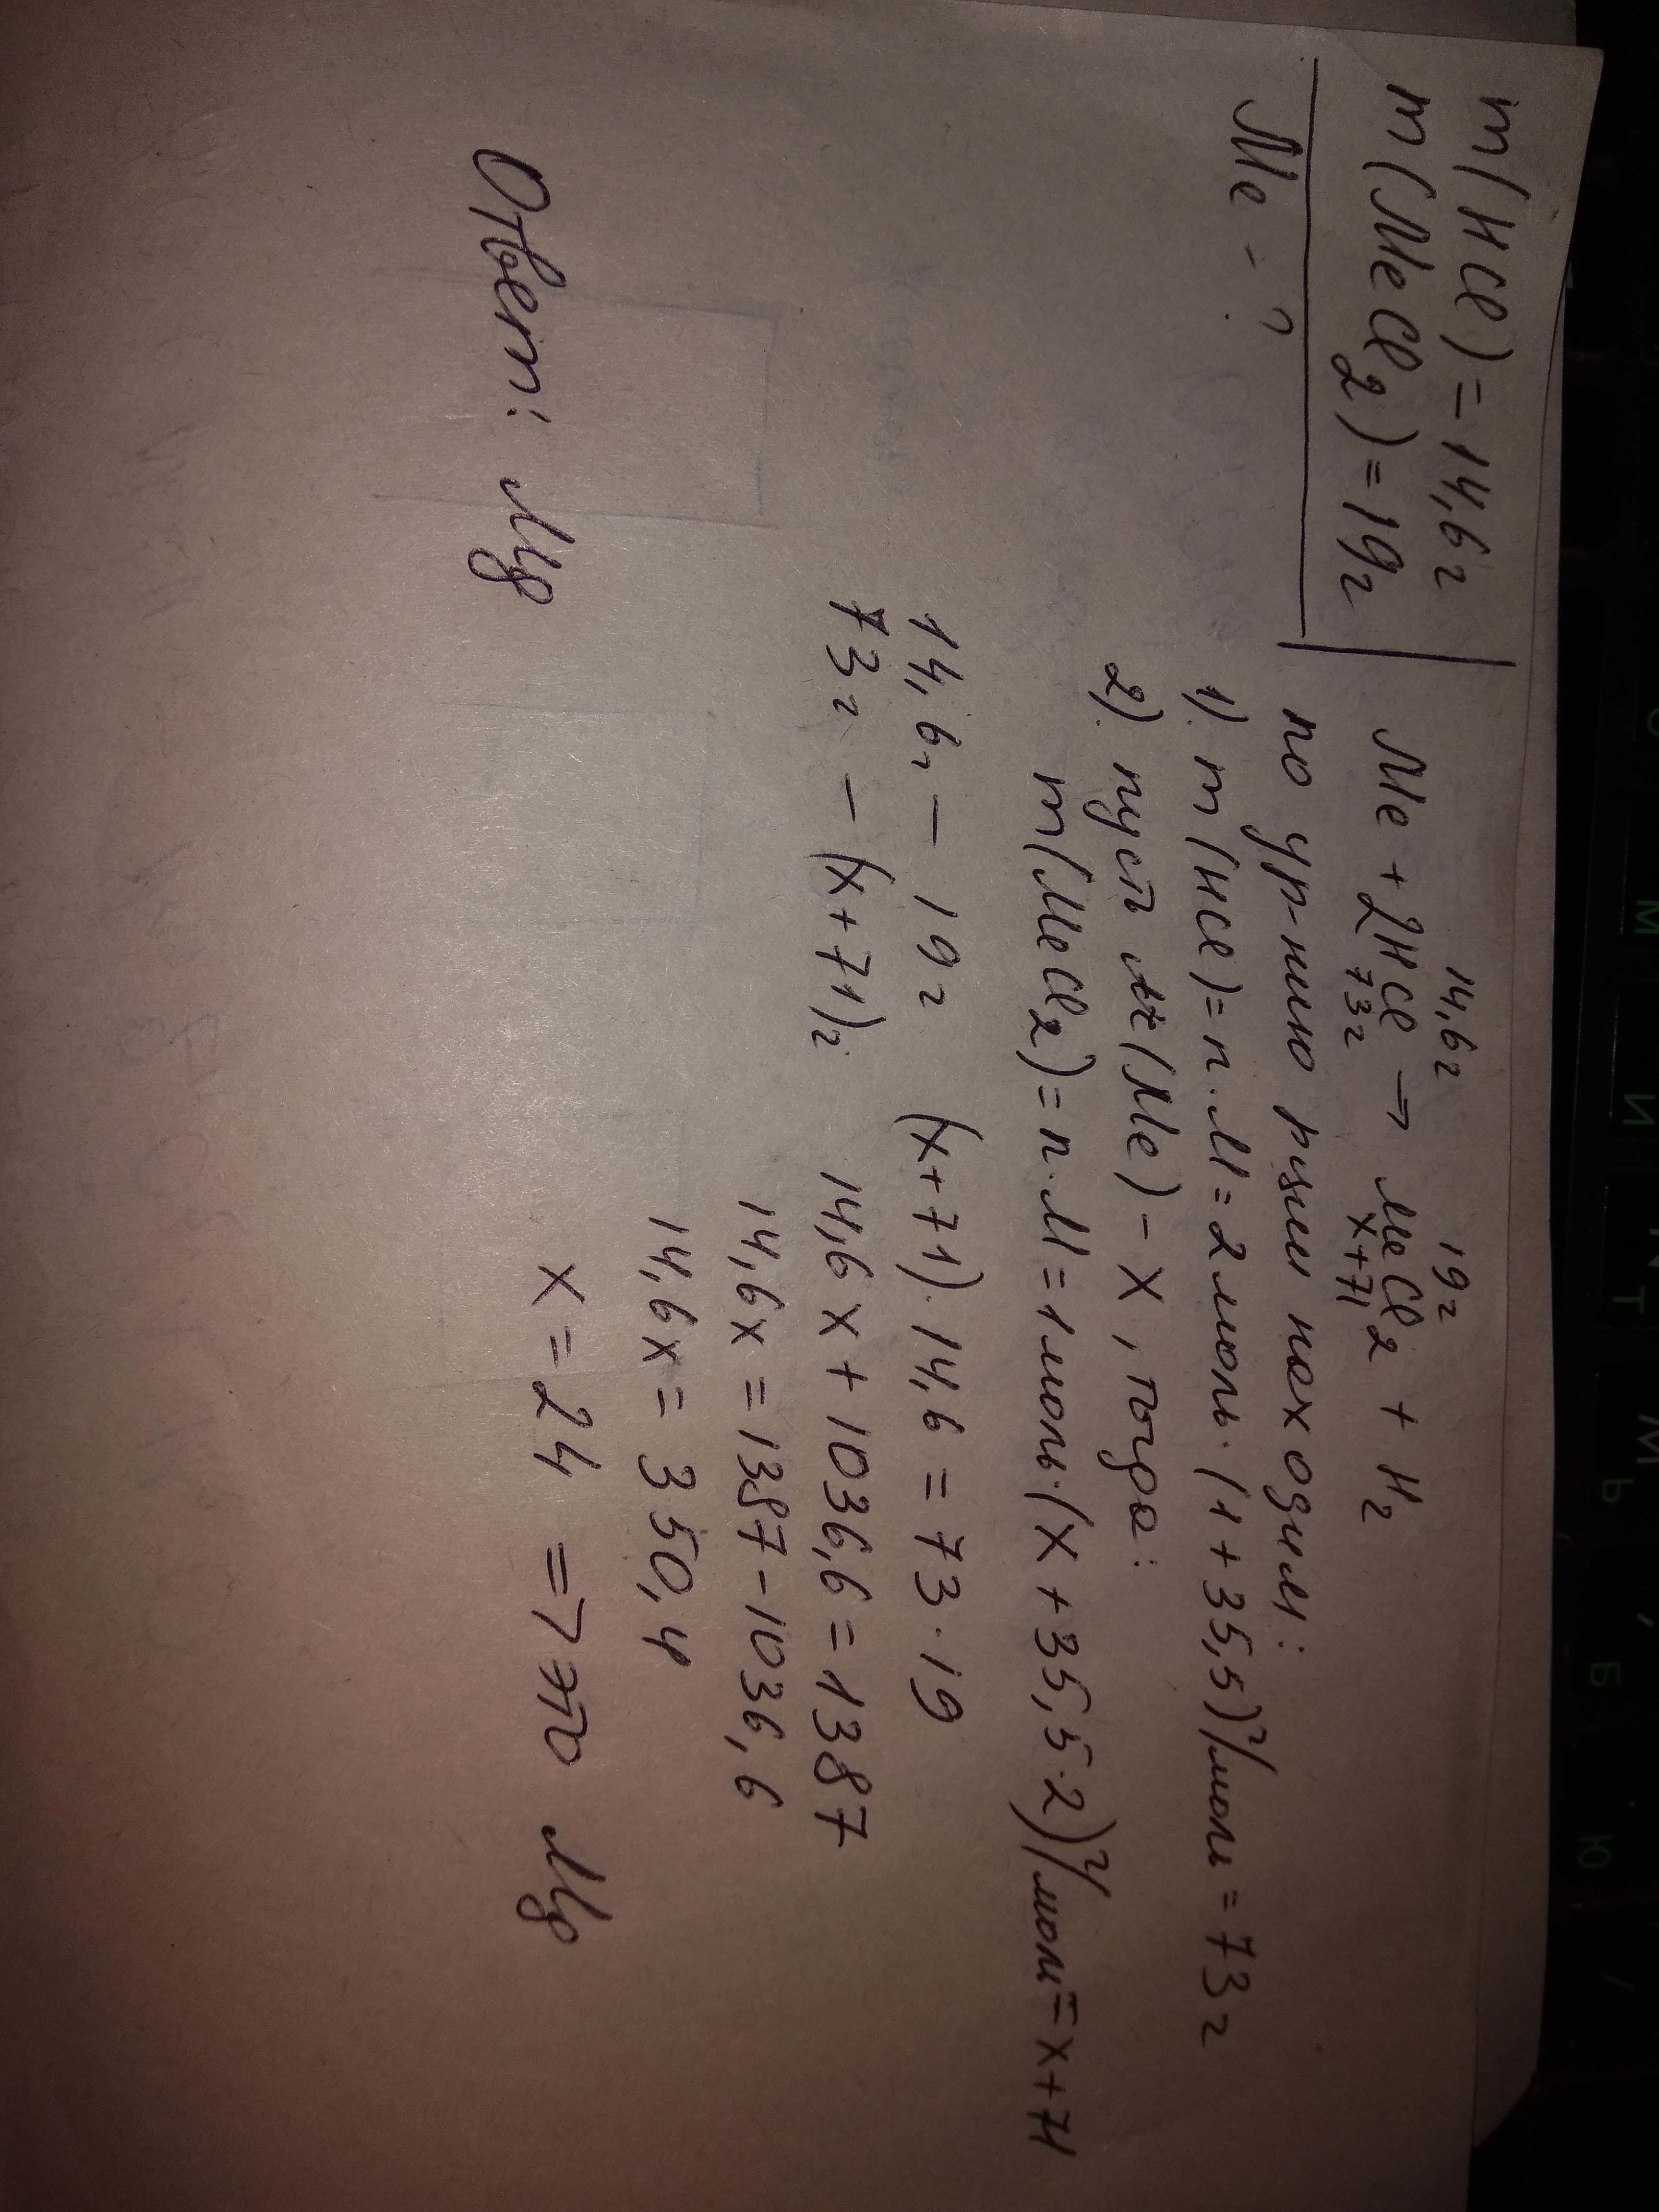 m(HCl) = 14,6г
m(MeCl2) = 19г
Me - ?
14,6г 19г
Me + 2HCl → MeCl2 + H2
73г x+71
по ур-нию р-ции находим:
1). m(HCl) = n·M = 2моль·(1+35,5)г/моль = 73г
2). пусть Ar(Me) - X, тогда:
m(MeCl2) = n·M = 1моль·(x+35,5·2)г/моль = x+71
14,6г — 19г (x+71)·14,6 = 73·19
73г — (x+71)г 14,6x + 1036,6 = 1387
14,6x = 1387 - 1036,6
14,6x = 350,4
x = 24 => это Mg
Ответ: Mg